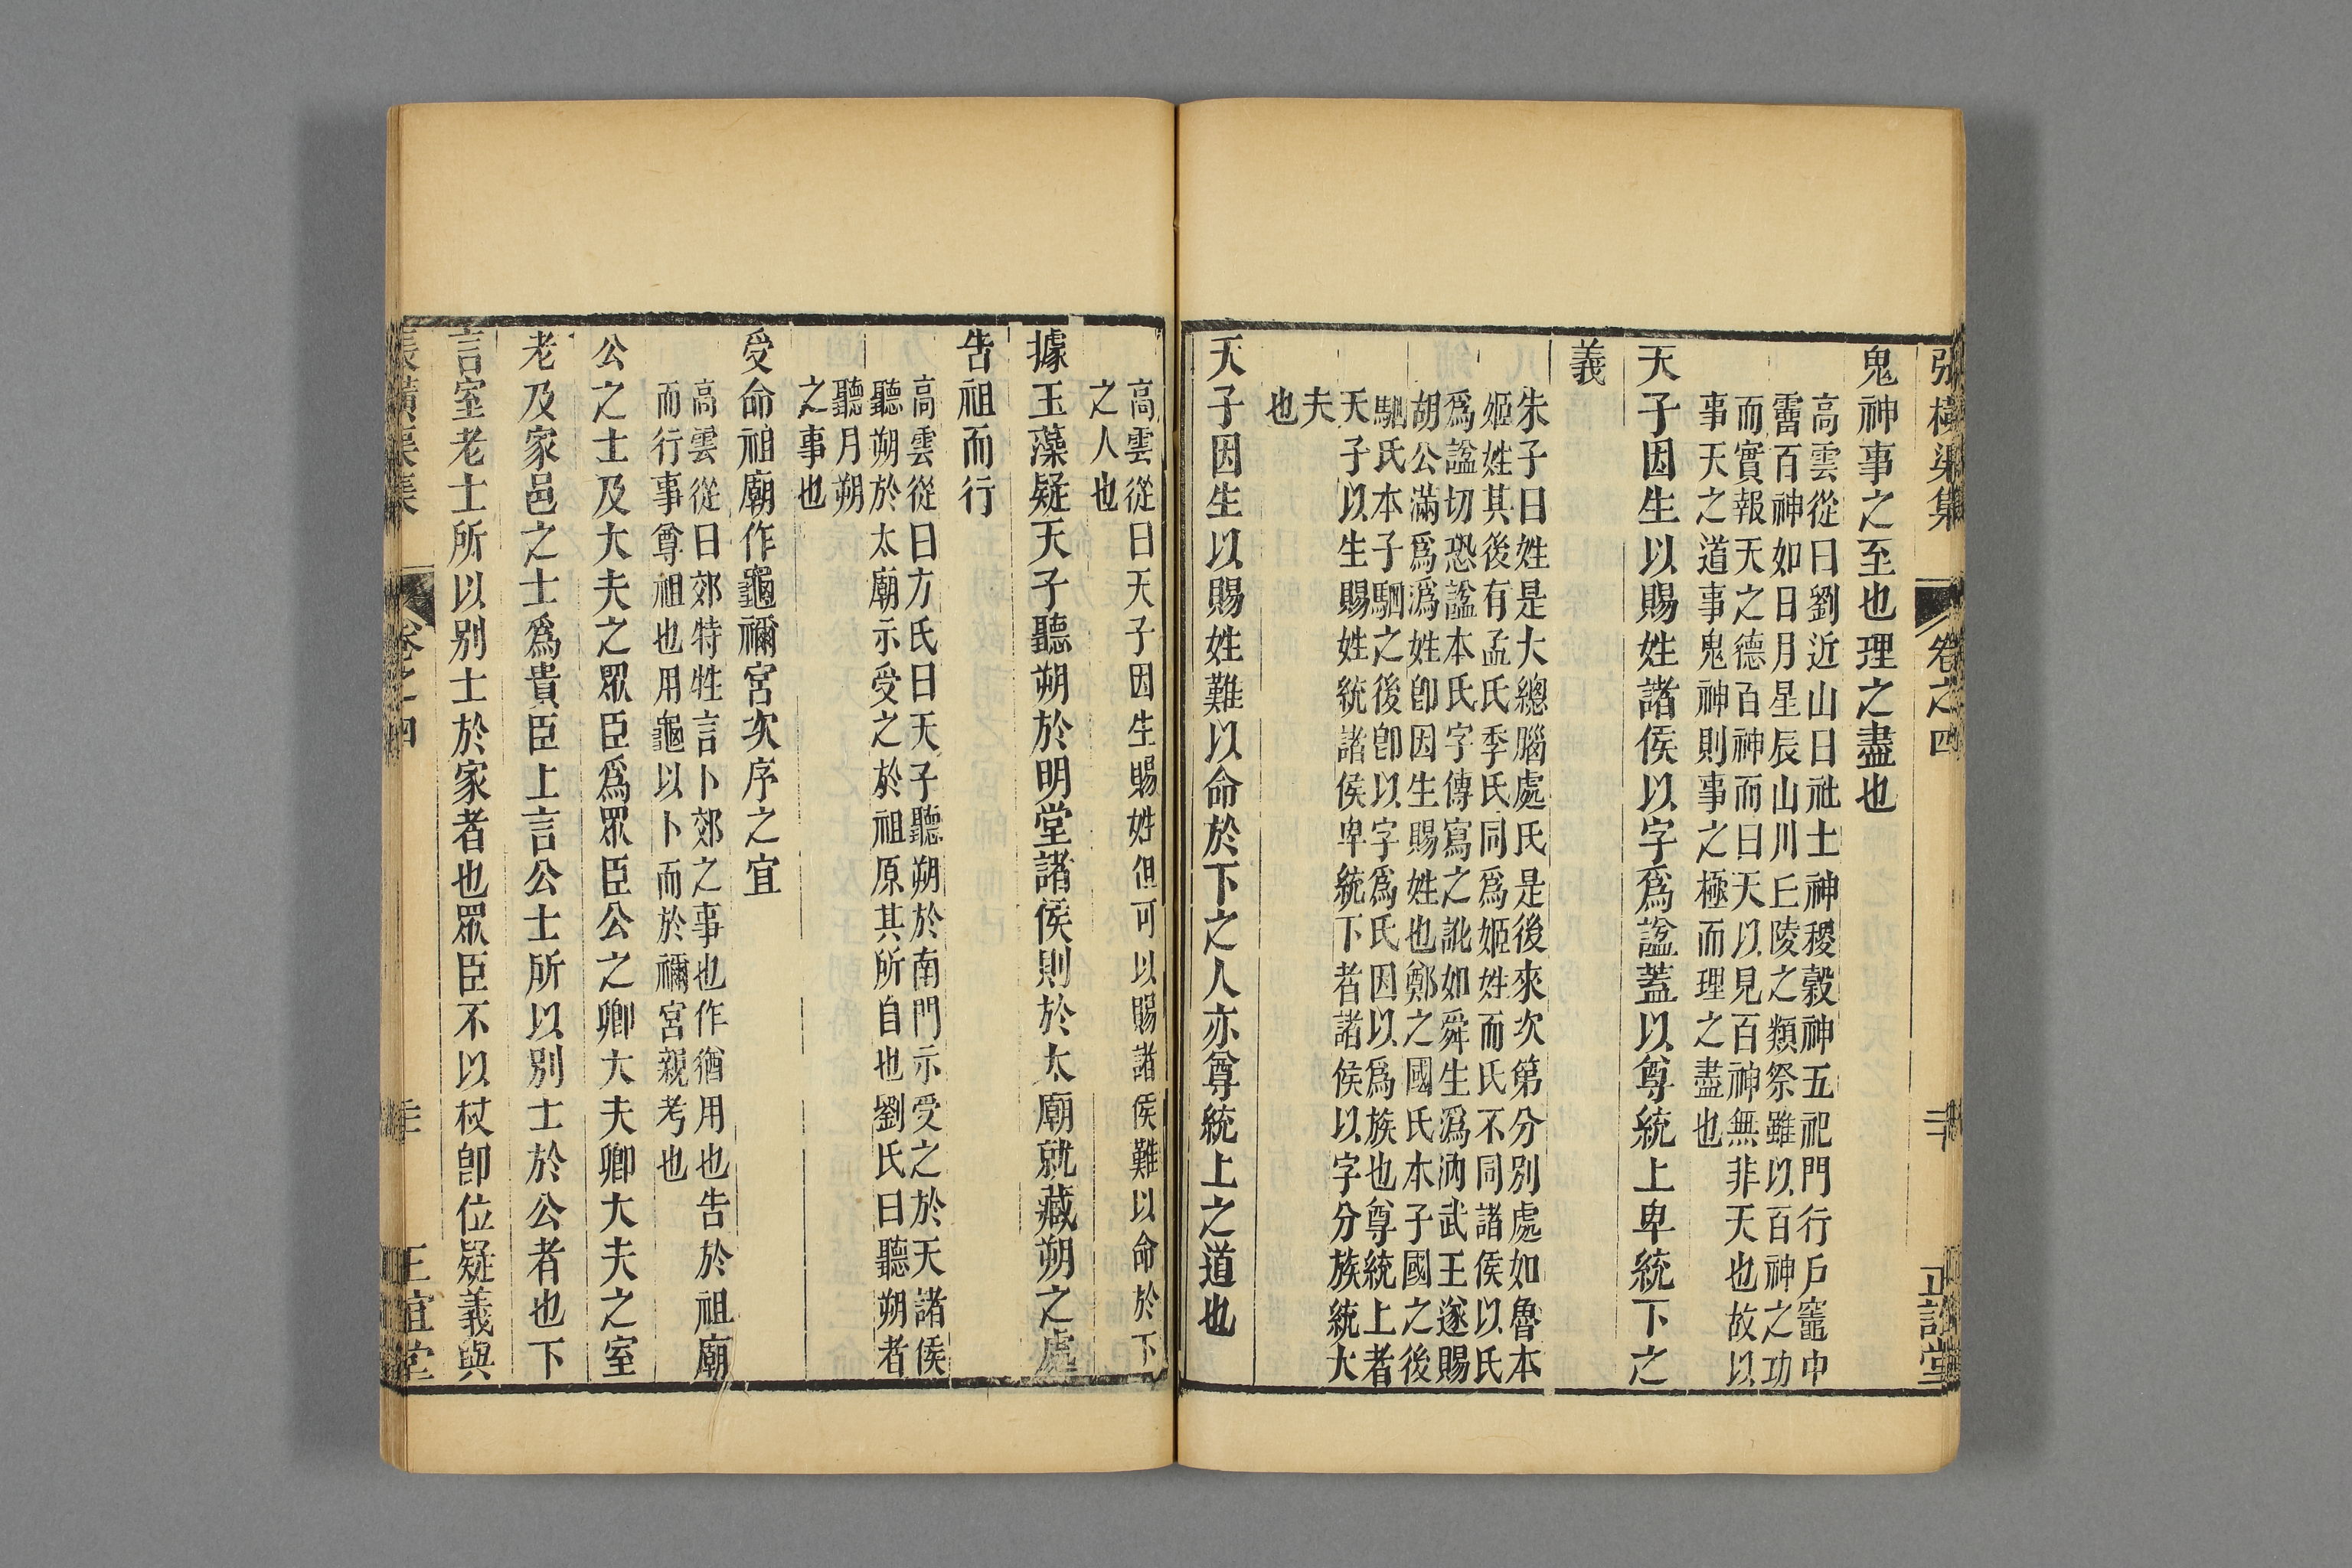 張橫渠集 卷之四 二十 正誼堂
鬼神事之至也理之盡也
高雲從曰劉近山曰社土神稷穀神五祀門行戶竈中
霤百神如日月星辰山川丘陵之類祭雖以百神之功
而實報天之德百神而曰天以見百神無非天也故以
事天之道事鬼神則事之極而理之盡也
天子因生以賜姓諸侯以字爲諡蓋以尊統上卑統下之
義
朱子曰姓是大總腦處氏是後來次第分別處如魯本
姬姓其後有孟氏季氏同爲姬姓而氏不同諸侯以氏
爲諡切恐諡本氏字傳寫之訛如舜生潙汭武王遂賜
胡公滿爲潙姓卽因生賜姓也鄭之國氏本子國之後
駟氏本子駟之後卽以字爲氏因以爲族也尊統上者
天子以生賜姓統諸侯卑統下者諸侯以字分族統大
夫
也
天子因生以賜姓難以命於下之人亦尊統上之道也
高雲從曰天子因生賜姓但可以賜諸侯難以命於下
之人也
據玉藻疑天子聽朔於明堂諸侯則於太廟就藏朔之處
告祖而行
高雲從曰方氏曰天子聽朔於南門示受之於天諸侯
聽朔於太廟示受之於祖原其所自也劉氏曰聽朔者
聽月朔
之事也
受命祖廟作龜禰宮次序之宜
高雲從曰郊特牲言卜郊之事也作猶用也告於祖廟
而行事尊祖也用龜以卜而於禰宮親考也
公之士及大夫之眾臣爲眾臣公之卿大夫卿大夫之室
老及家邑之士爲貴臣上言公士所以別士於公者也下
言室老士所以別士於家者也眾臣不以杖卽位疑義與
張橫渠集 卷之四 二十 正誼堂